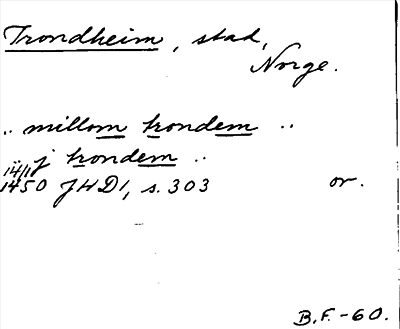 Trondheim, stad,
Norge.
.. millom trondem ..
j trondem ..
14/1
1450 JHD1, s. 303 or.
B.F. -60.